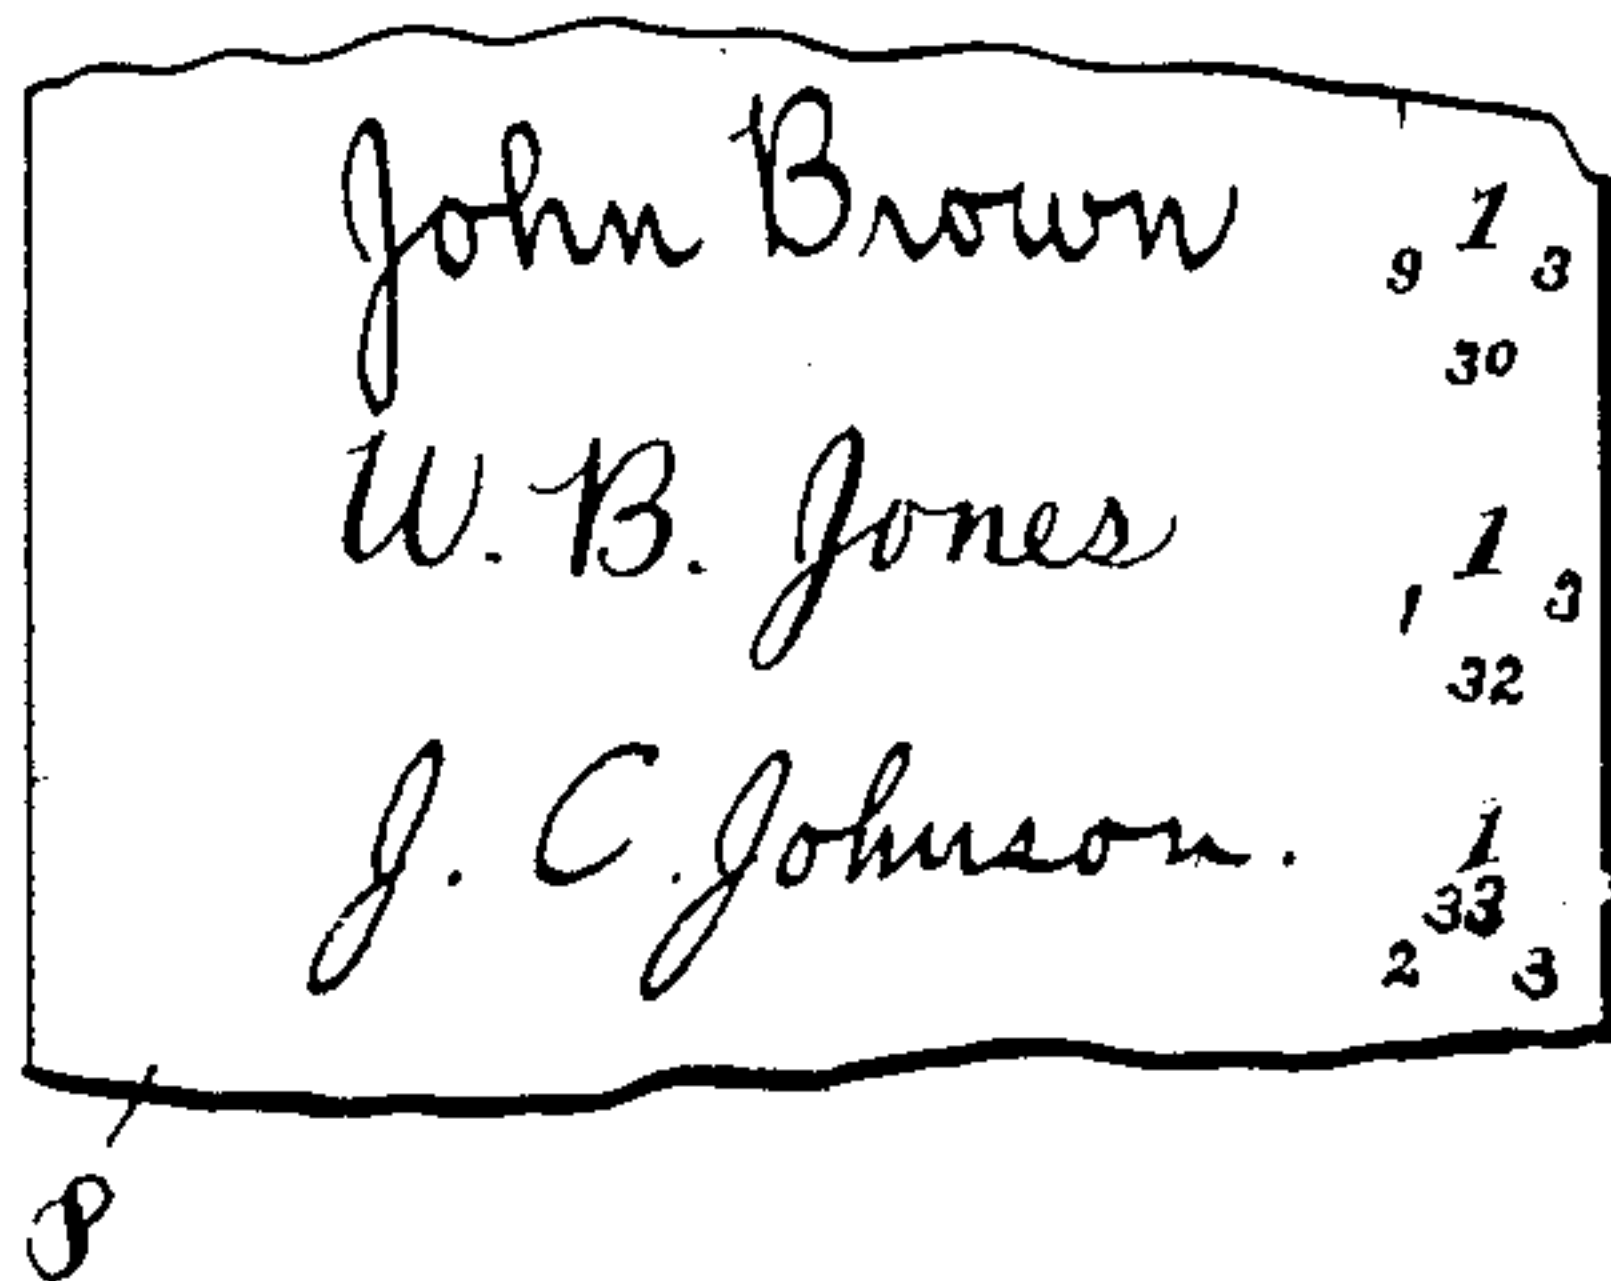 John Brown 1
9 3
30
W. B. Jones 1
1 3
32
J. C. Johnson. 1
33
2 3
P